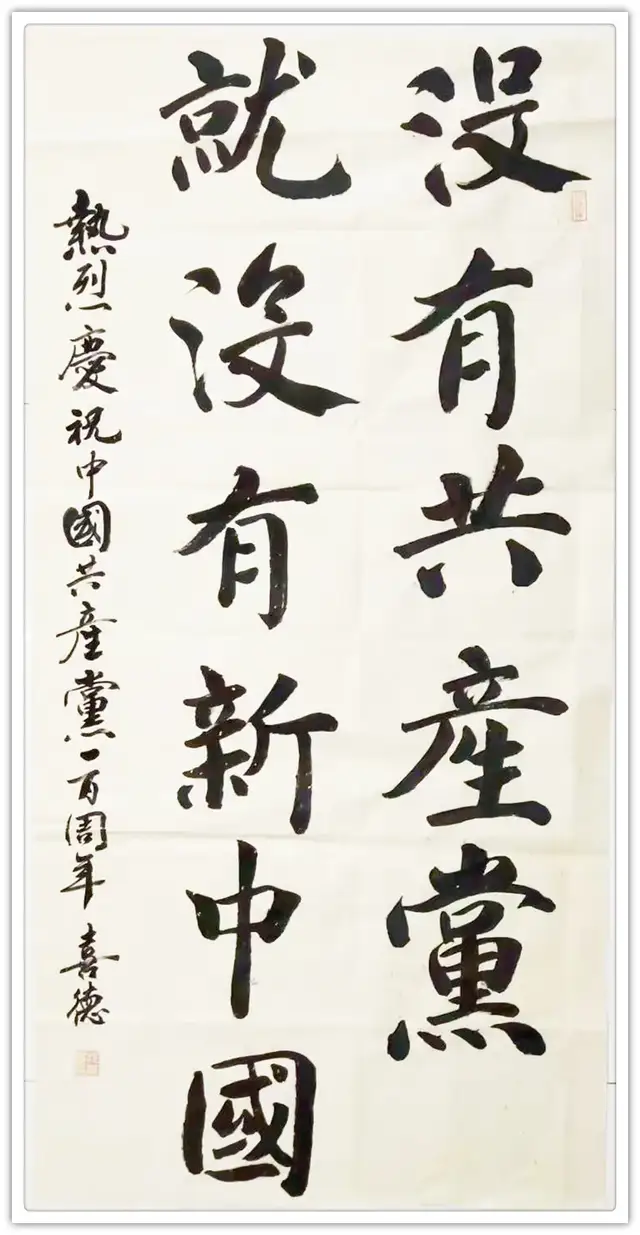 没有共產黨
就没有新中國
熱烈慶祝中國共產黨一百周年 喜德